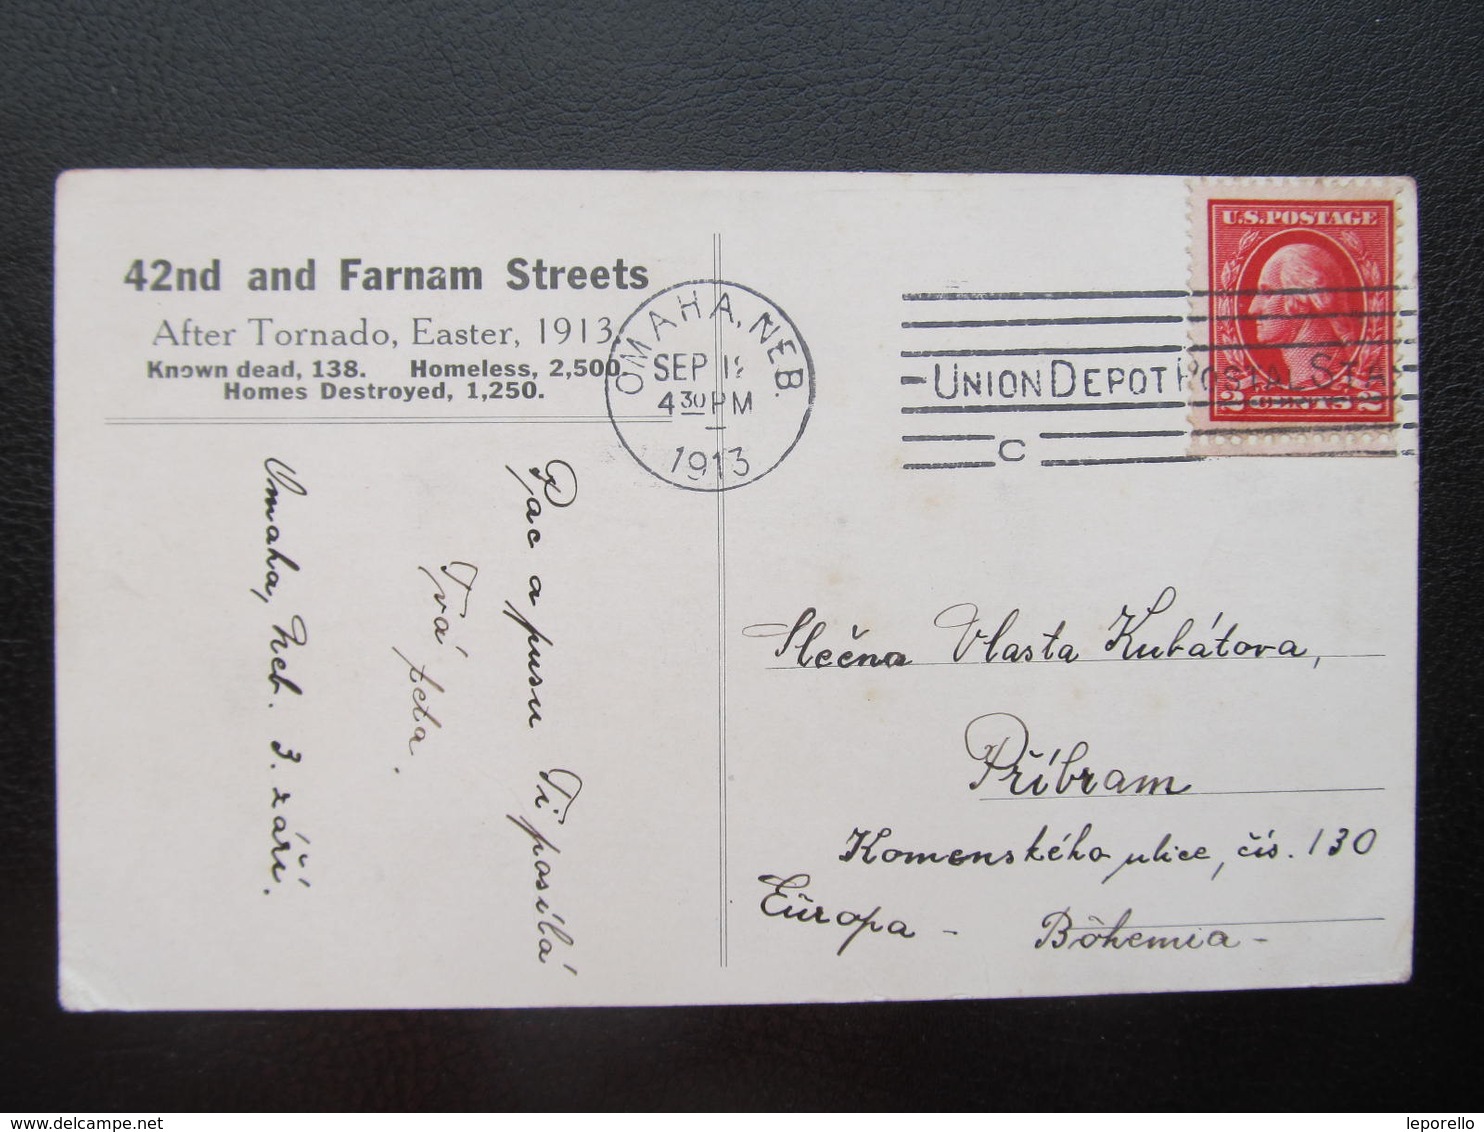 42nd and Farnam Streets
After Tornado, Easter, 1913.
Known dead, 138. Homeless, 2,500.
Homes Destroyed, 1,250.
OMAHA, NEB.
SEP
4 30 PM
1913
UNION DEPOT POSTAL STA
C
U.S. POSTAGE
2 CENTS 2
Pac a pusu Ti posílá
Tvá teta.
Omaha, Neb. 3. září.
Slečna Vlasta Kubátova,
Příbram
Komenského ulice, čís. 130
Europa - Bohemia -
www.delcampe.net
leporello